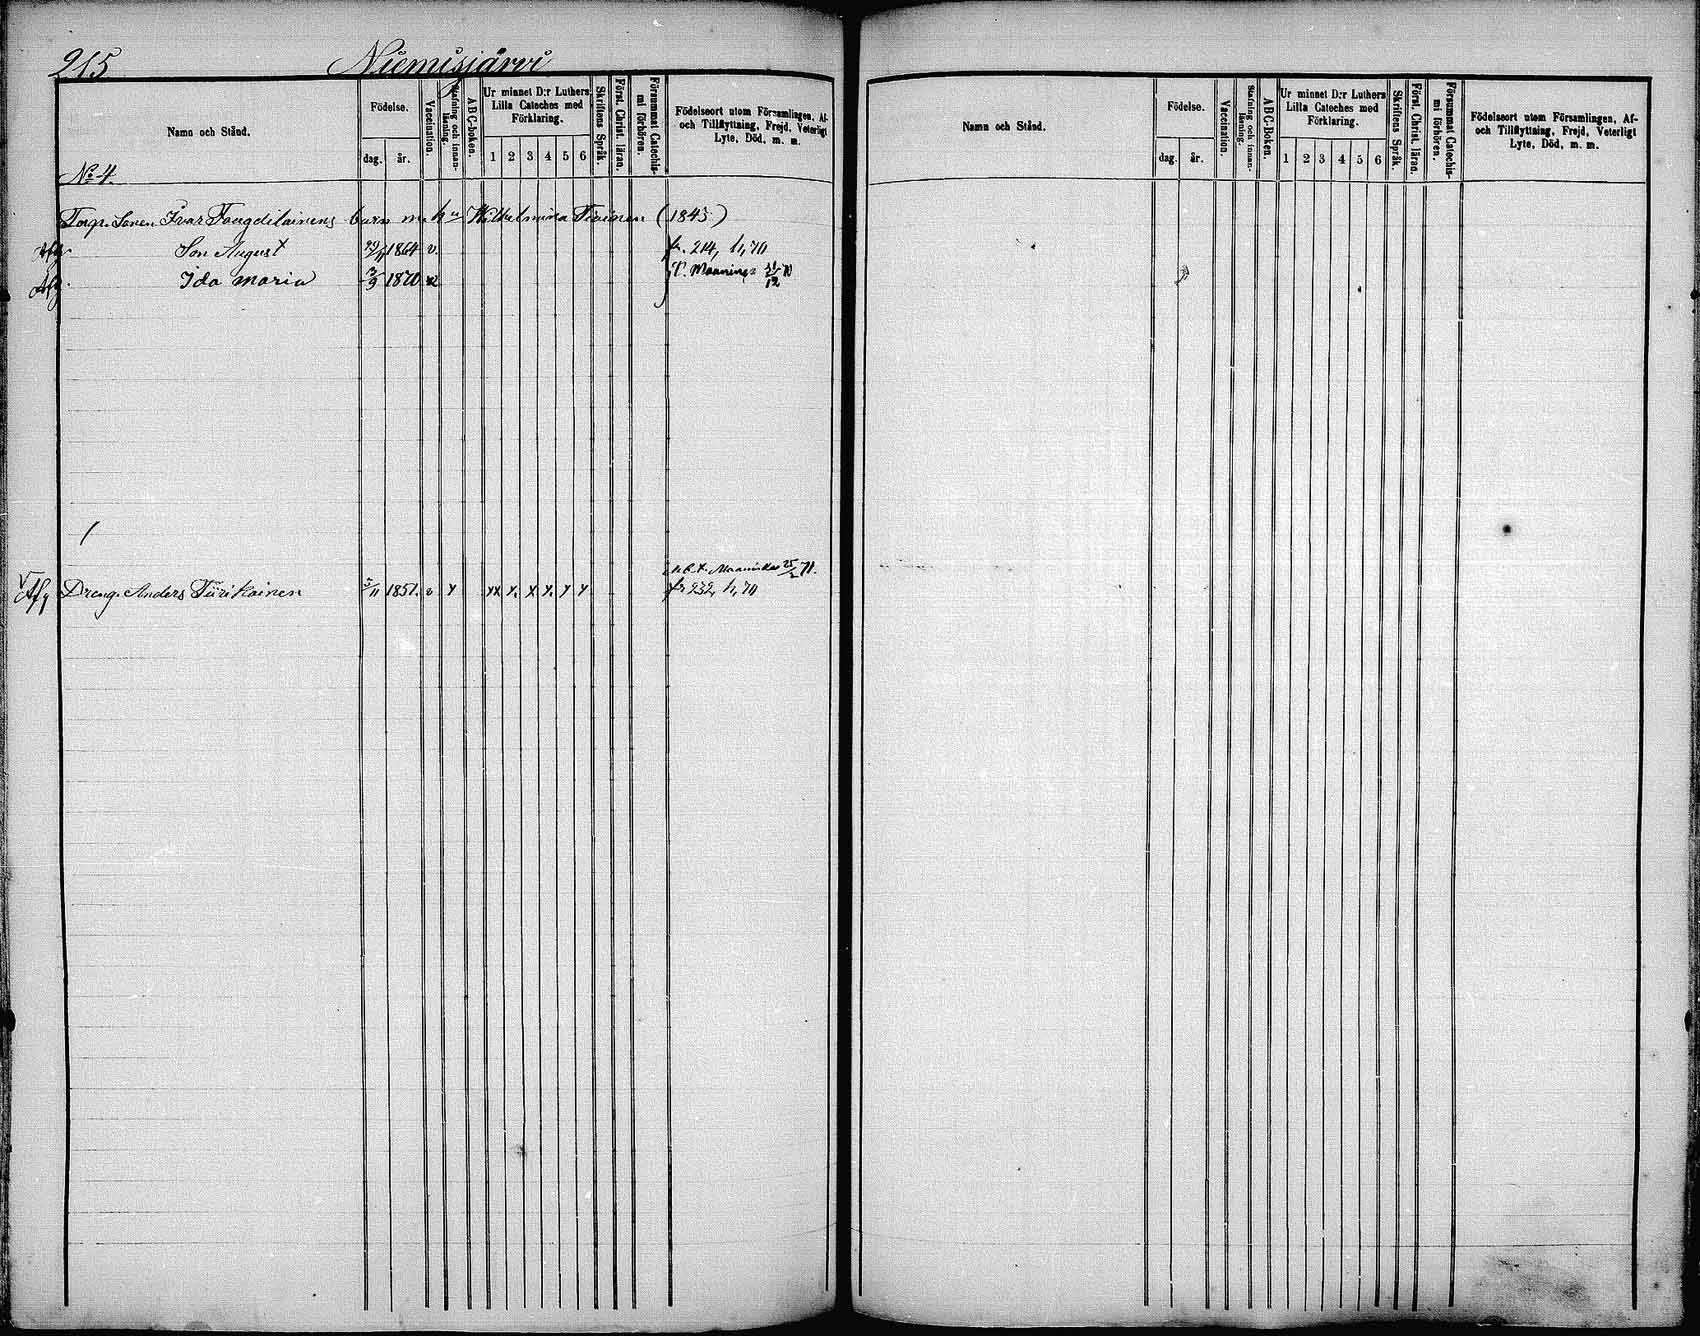 215 Niemisjärvi
Namn och Stånd.
Födelse.
dag. år.
Vaccination.
Stafning och innan-läsning.
ABC-boken.
Ur minnet D:r Luthers
Lilla Cateches med
Förklaring.
1 2 3 4 5 6
Skriftens Språk.
Först. Christ. läran.
Försummat Catechis-
mi förhören.
Födelseort utom Församlingen, Af-
och Tillflyttning, Frejd, Veterligt
Lyte, Död, m. m.
No 4.
Torp. Sonen Ivar barn m. hu Wilhelmina (1845)
Afg. Son August 22/11 1864 v. fr. 214, h, 70
Afg. Ida Maria 3/9 1870 v. T. Maaninga 31/12 70
Maaninka 25/2 71.
Afg Dreng. Anders Tiirikainen 5/11 1851. v y yx y. x y. y y fr 232, h, 70
Namn och Stånd.
Födelse.
dag. år.
Vaccination.
Stafning och innan-läsning.
ABC-Boken.
Ur minnet D:r Luthers
Lilla Cateches med
Förklaring.
1 2 3 4 5 6
Skriftens Språk.
Först. Christ. läran.
Försummat Catechis-
mi förhören.
Födelseort utom Församlingen, Af-
och Tillflyttning, Frejd, Veterligt
Lyte, Död, m. m.